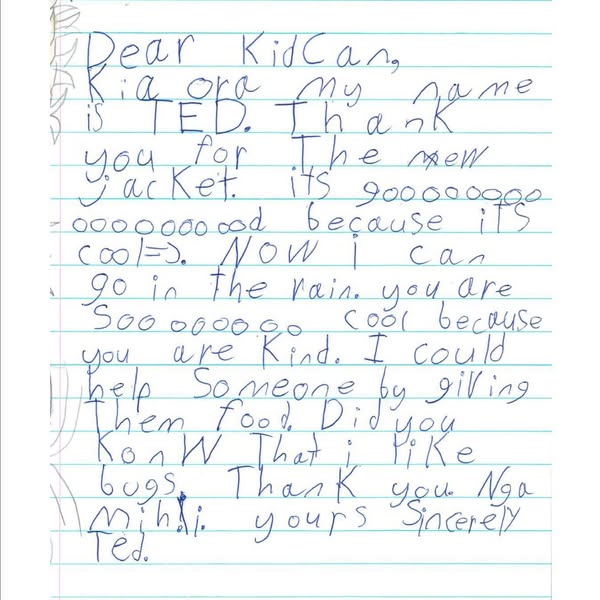 Dear KidCan,
Kia ora my name
is TED. Thank
you for The new
jacket. its gooooooooo
ooooooooood because iTS
cool=). NOW i can
go in the rain. you are
Sooooooooo cool because
you are Kind. I could
help Someone by giving
Them food. Did you
KonW That i like
bugs. Thank you. Nga
mihi. yours Sincerely
Ted.